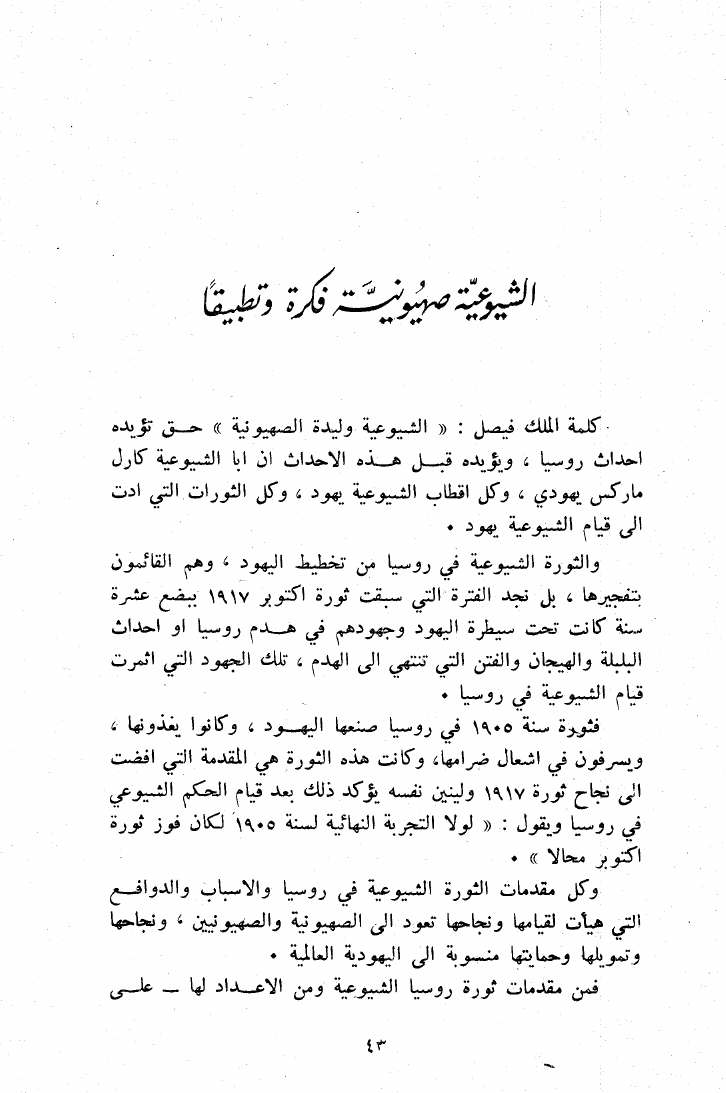 الشيوعيّة صهيونيّة فكرة وتطبيقًا
كلمة الملك فيصل : « الشيوعية وليدة الصهيونية » حــق تؤيده
احداث روسيا ، ويؤيده قبــل هــذه الاحداث ان ابا الشيوعية كارل
ماركس يهودي ، وكل اقطاب الشيوعية يهود ، وكل الثورات التي ادت
الى قيام الشيوعية يهود .
والثورة الشيوعية في روسيا من تخطيط اليهود ، وهم القائمون
بتفجيرها ، بل نجد الفترة التي سبقت ثورة اكتوبر ١٩١٧ ببضع عشرة
سنة كانت تحت سيطرة اليهود وجهودهم في هــدم روسيا او احداث
البلبلة والهيجان والفتن التي تنتهي الى الهدم ، تلك الجهود التي اثمرت
قيام الشيوعية في روسيا .
فثورة سنة ١٩٠٥ في روسيا صنعها اليهــود ، وكانوا يغذونها ،
ويسرفون في اشعال ضرامها، وكانت هذه الثورة هي المقدمة التي افضت
الى نجاح ثورة ١٩١٧ ولينين نفسه يؤكد ذلك بعد قيام الحكم الشيوعي
في روسيا ويقول : « لولا التجربة النهائية لسنة ١٩٠٥ لكان فوز ثورة
اكتوبر محالا » .
وكل مقدمات الثورة الشيوعية في روسيا والاسباب والدوافــع
التي هيأت لقيامها ونجاحها تعود الى الصهيونية والصهيونيين ، ونجاحها
وتمويلها وحمايتها منسوبة الى اليهودية العالمية .
فمن مقدمات ثورة روسيا الشيوعية ومن الاعــداد لها ــ علــى
٤٣